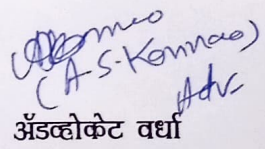 (A-S-Konnao)
Adv-
ॲडव्होकेट वर्धा